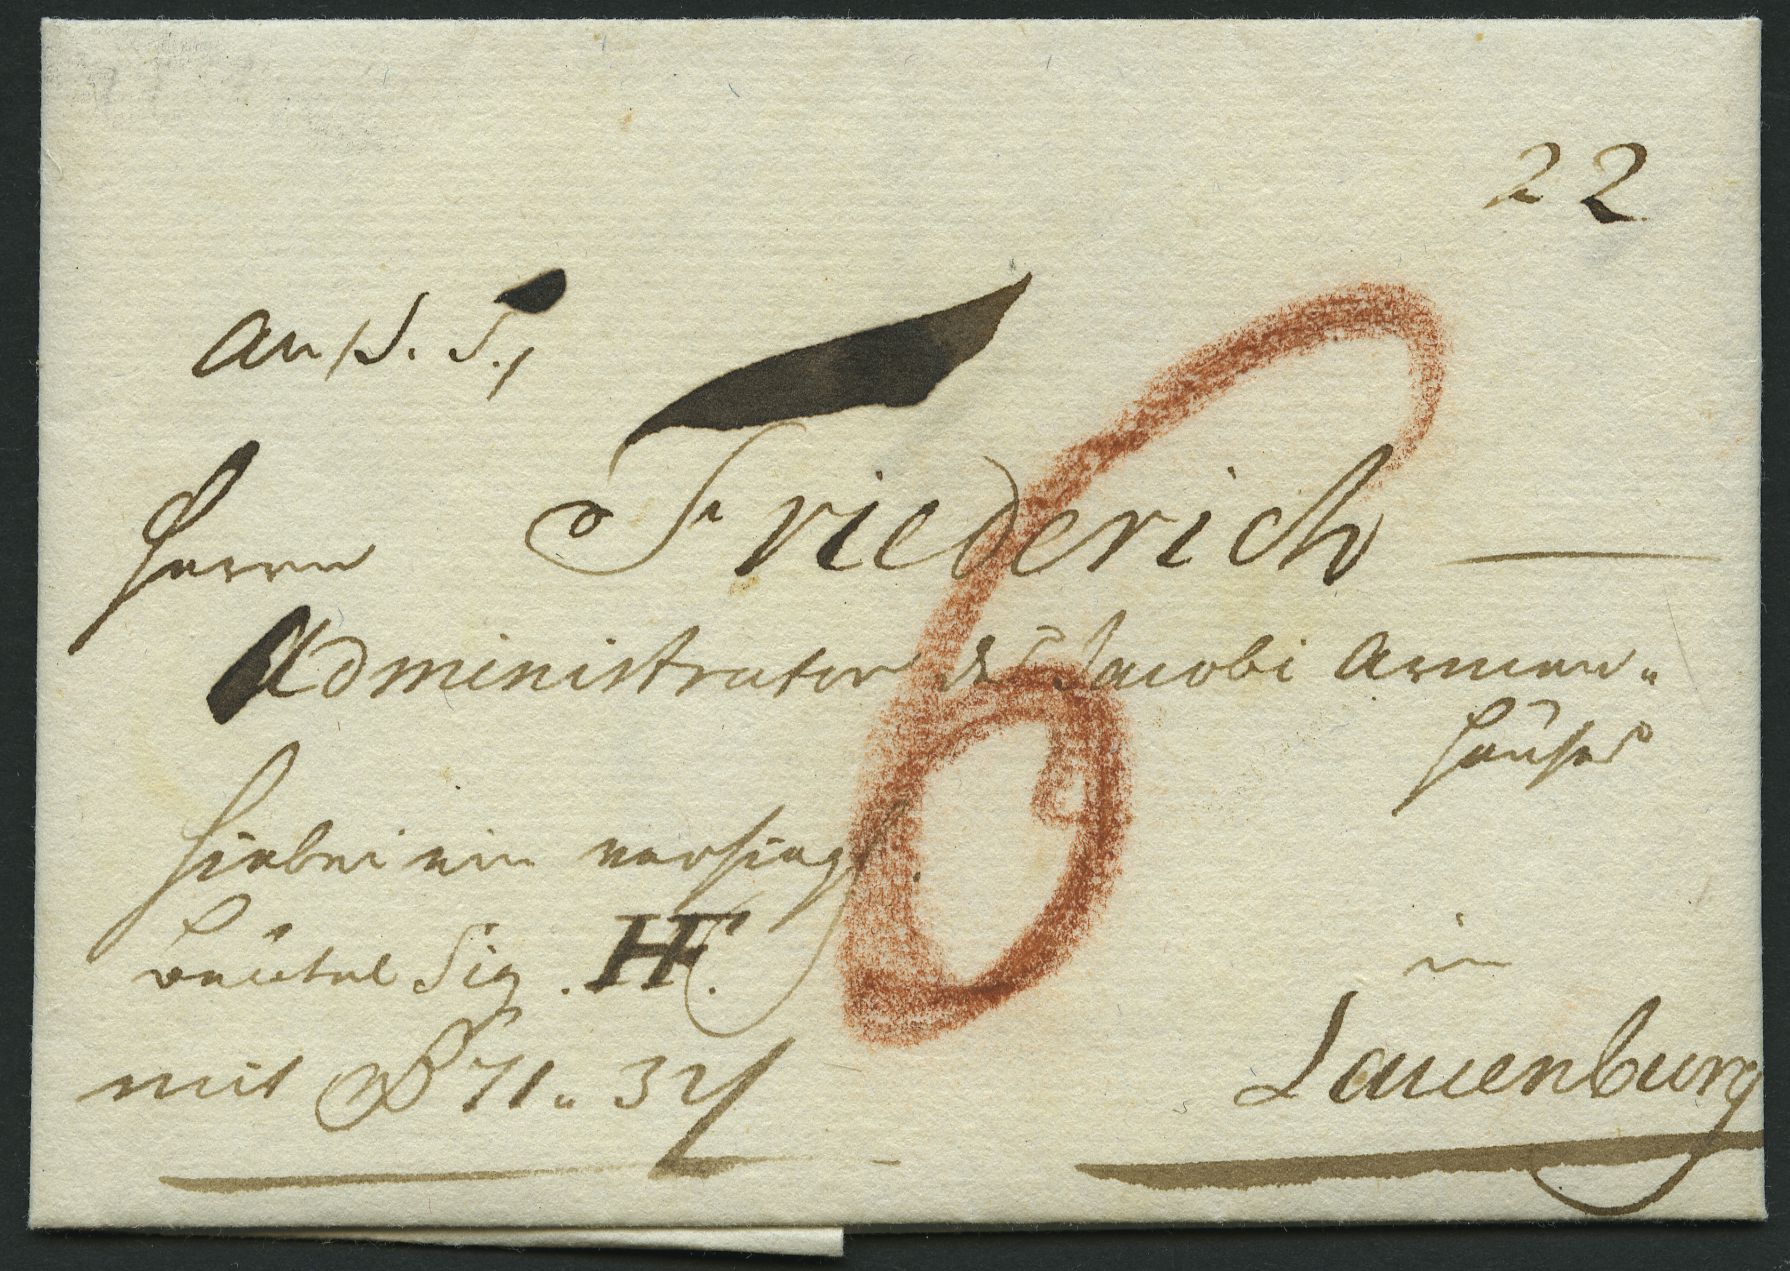 22
An /S. T./
Herrn Friederich
Administrator des Jacobi Armen-
hauses
hiebei ein versiegt.
beutel Sig. HF.
mit 71. 32
in
Lauenburg
6